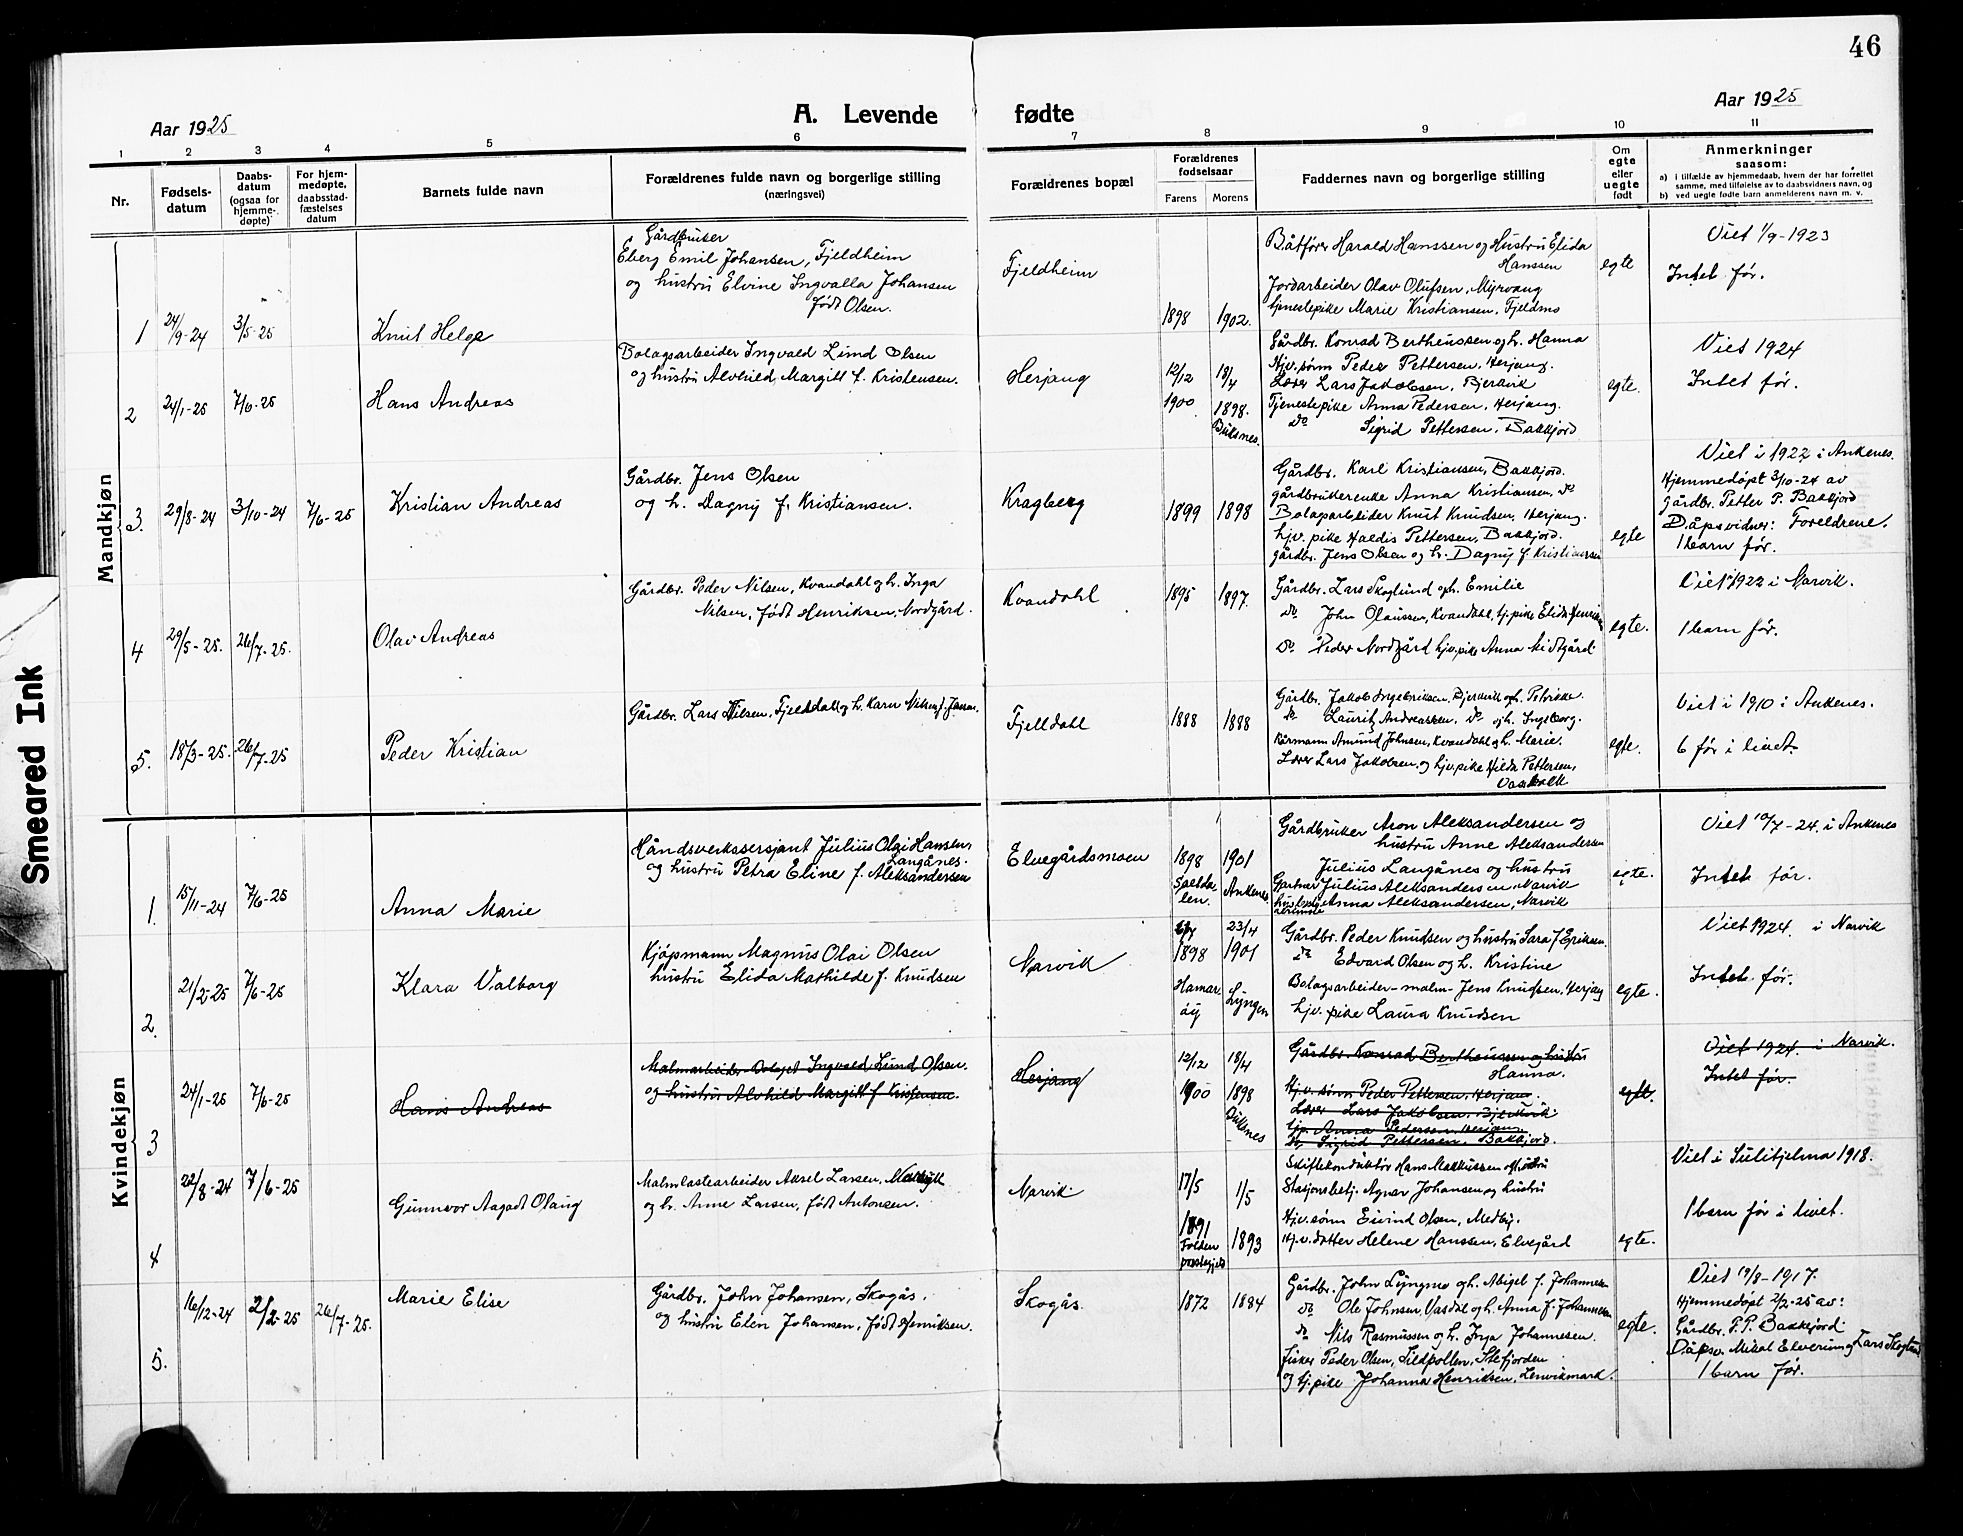 46
Aar 1925
A. Levende fødte
Aar 1925
1 2 3 4 5 6 7 8 9 10 11
Nr.
Fødsels-
datum
Daabs-
datum
(ogsaa for
hjemme-
døpte)
For hjem-
medøpte,
daabsstad-
fæstelses
datum
Barnets fulde navn
Forældrenes fulde navn og borgerlige stilling
(næringsvei)
Forældrenes bopæl
Forældrenes
fødselsaar
Farens Morens
Faddernes navn og borgerlige stilling
Om
egte
eller
uegte
født
Anmerkninger
saasom:
a) i tilfælde av hjemmedaab, hvem der har forrettet
samme, med tilføielse av to daabsvidners navn, og
b) ved uegte fødte barn anmelderens navn m. v.
Mandkjøn
1 24/9-24 3/5-25
Knut Helge
Gårdbruker
Eberg Emil Johansen, Fjeldheim
og hustru Elvine Ingvalla Johansen
født Olsen.
Fjeldheim
1898 1902.
Båtfører Harald Hanssen og Hustru Elida
Hanssen
Jordarbeider Olav Olufsen, Myrvang
tjenestepike Marie Kristiansen, Fjeldmo
egte
Viet 1/9-1923
Intet før.
2 24/1-25 7/6-25
Hans Andreas
Bolagsarbeider Ingvald Lund Olsen
og hustru Alvhild Margitt f. Kristensen.
Herjang
12/12 18/4
1900 1898.
Buksnes.
Gårdbr. Konrad Bertheussen og h. Hanna
Hjv. sønn Peder Pettersen, Herjang.
Lærer Lars Jakobsen, Bjerkvik
Tjenestepike Anna Pedersen, Herjang.
do Sigrid Pettersen, Bakkjord
egte.
Viet 1924
Intet før.
3. 29/8-24 3/10-24 7/6-25
Kristian Andreas
Gårdbr. Jens Olsen
og h. Dagny f. Kristiansen.
Kragberg
1899 1898
Gårdbr. Karl Kristiansen, Bakkjord.
gårdbrukerenke Anna Kristiansen, do
Bolagarbeider Knut Knudsen, Herjang.
hjv. pike Haldis Pettersen, Bakkjord.
gårdbr. Jens Olsen og h. Dagny f. Kristiansen
egte
Viet i 1922 i Ankenes.
Hjemmedøpt 3/10-24 av
Gårdbr. Petter P. Bakkjord
Dåpsvidner: Foreldrene.
1 barn før.
4 29/5-25. 26/7-25.
Olav Andreas
Gårdbr. Peder Nilsen, Kvandahl og h. Inga
Nilsen, født Henriksen, Nordgård.
Kvandahl
1895 1897.
Gårdbr. Lars Skoglund og h. Emilie
do John Olaussen, Kvandahl, tj. pike Elida Henriksen
do Peder Nordgård hjv. pike Anna Midtgård
egte.
Viet 1922 i Narvik.
1 barn før.
5. 18/3-25. 26/7-25
Peder Kristian
Gårdbr. Lars Nilsen, Fjelldahl og h. Karn Nilsen f. Jensen.
Fjelldahl
1888 1888
Gårdbr. Jakob Ingebriksen, Bjerkvik og h. Petrikke.
do Lauritz Andreassen, do og h. Ingeborg.
Kårmann Amund Johnsen, Kvandahl og h. Marie.
Lærer Lars Jakobsen, og hjv. pike Hilda Pettersen,
egte.
Viet i 1910 i Ankenes.
6 før i livet
Kvindekjøn
1. 15/11-24 7/6-25
Anna Marie
Håndsverkssersjant Julius Olai Hansen,
Langånes.
og hustru Petra Eline f. Aleksandersen
Elvegårdsmoen
1898 1901
Saltda-
len. Ankenes
Gårdbruker Aron Aleksandersen og
hustru Anne Aleksandersen
Julius Langånes og hustru
Gartner Julius Aleksandersen Narvik
Anna Aleksandersen, Narvik
egte.
Viet 10/7-24. i Ankenes
Intet før.
2. 21/2-25 7/6-25
Klara Valborg
Kjøpmann Magnus Olai Olsen
hustru Elida Mathilde f. Knudsen
Narvik
23/4
1898 1901
Hamar-
øy Lyngen
Gårdbr. Peder Knudsen og hustru Sara f Eriksen.
do Edvard Olsen og h. Kristine
Bolagsarbeider-malm- Jens Knudsen, Herjang
hjv. pike Laura Knudsen
egte.
Viet 1924. i Narvik
Intet før.
3 24/1-25 7/6-25
Hans Andreas
Malmarbeider Bolaget Ingvald Lund Olsen.
og hustru Alvhild Margitt f. Kristensen.
Herjang
12/12 18/4
1900 1898
Buksnes
Gårdbr. Konrad Bertheussen og hustru
Hanna.
Hjv. sønn Peder Pettersen, Herjang.
Lærer Lars Jakobsen, Bjerkvik
tjp. Anna Pedersen, Herjang.
do Sigrid Pettersen, Bakkjord.
egte.
Viet 1924. i Narvik.
Intet før.
4 22/8-24 7/6-25
Gunnvor Aagodt Olaug
Malmlastearbeider Aksel Larsen,
og h. Anne Larsen, født Antonsen.
Narvik
17/5 1/5
1891 1893
Folden
prestegjeld
Skiftekonduktør Hans Makkussen og hustru
Stasjonsbetj. Agnar Johansen og hustru
Hjv. sønn Eivind Olsen, Medby.
Hj.v. datter Helene Hanssen, Elvegård
egte.
Viet i Sulitjelma 1918.
1 barn før i livet.
5. 16/12-24 2/2-25 26/7-25.
Marie Elise
Gårdbr. John Johansen, Skogås,
og hustru Elen Johansen, født Henriksen.
Skogås
1872 1884
Gårdbr. John Lyngmo og h. Abigel f. Johannesen
do Ole Johnsen, Vasdal og h. Anna f. Johannesen
do Nils Rasmussen og h. Inga Johannesen.
fisker Peder Olsen, Sildpollen, Stefjorden
og tj. pike Johanna Henriksen, Lenvikmark.
egte.
Viet 19/8-1917.
Hjemmedøpt 2/2-25 av:
Gårdbr. P. P. Bakkejord
Dåpsv. Mikal Elverum og Lars Skoglund
1 barn før.
Smeared Ink